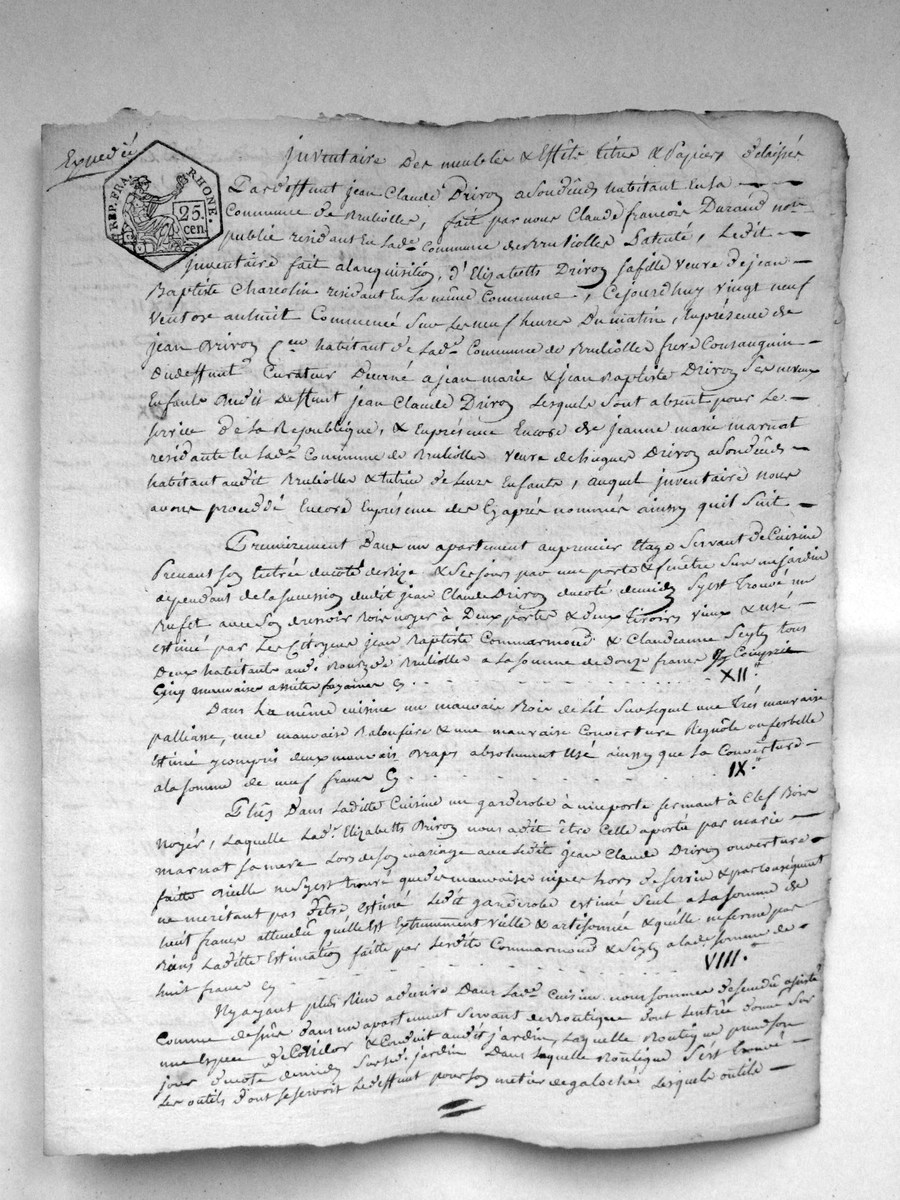 Expediée
REP. FRA. RHONE.
25. cen
Inventaire des meubles & Effets titres & Papiers délaissés
Par deffunt jean Claude Drivon asondécès habitant En la
Commune de Brulioles, fait par nous Claude françois Durand not.
public residant En lad. Commune de Brulioles Patenté, Ledit
Inventaire fait alarequisition, d'Elizabeth Drivon sa fille veuve de jean
Baptiste Charcolin residant En la même Commune, Cejourdhuy vingt neuf
Ventose an huit Commencé sur Les neuf heures Du matin, En présence de
jean Drivon habitant de Lad. Commune de Brulioles frere Consanguin
Dudeffunt Curateur Décerné a jean marie & jean Baptiste Drivon Ses neveux
Enfants dudit Deffunt jean Claude Drivon Lesquels sont absent pour Le
service de La Republique, & En présence Encore de jeanne marie marnat
residante En Lad. Commune de Brulioles veuve de hugues Drivon asondécès
habitant audit Brulioles & tutrice de Leurs Enfants, auquel inventaire nous
avons procédé Encore En présence des Cy après nommés ainsy quil Suit
Premierement Dans un apartement au premier Etage Servant de Cuisine
Prenant son Entrée ducoté de bize & Ses jours par une porte & fenêtre Sur un jardin
dependant de la succession dudit jean Claude Drivon du coté de midy Syest trouvé un
Bufet avec son dressoir Bois noyer à Deux portes & deux tiroirs vieux & usé
estimé par Les Citoyens jean Baptiste Commarmond & Claude Seytz tous
Deux habitants aud. Bourg de Brulioles a la somme de douze francs y Compris
Cinq mauvaises assiettes fayance Cy XII.
Dans La même Cuisine un mauvais Bois de Lit Surlequel une très mauvaise
palliasse, une mauvaise Baloufiere & une mauvaise Couverture
Estimé y compris deux mauvais Draps absolument Usé ainsy que la Couverture
a la somme de neuf francs Cy IX.
Plus Dans Laditte Cuisine un garderobe à une porte fermant à Clef Bois
Noyer, Laquelle Lad. Elizabeth Drivon nous a dit être Celle aportée par marie
marnat sa mere Lors de son mariage avec Ledit jean Claude Drivon ouverture
faitte dicelle ne Syest trouvé que de mauvaises nipes hors de service & par conséquent
ne meritant pas d'être estimé Ledit garderobe estimé Seul a La somme de
huit francs attendu quelle est Extremement vieille & artisonnée & quelle ne ferme pas
Bien Laditte Estimation faitte par Lesdits Commarmond & Seytz a lade somme de
huit francs Cy VIII.
Ny ayant plus Rien a decrire Dans Lad. Cuisine nous sommes descendu
Comme dessus dans un apartement servant de Boutique dont L'entrée donne sur
une Espece de Coridor & Conduit audit jardin, Laquelle Boutique prend son
jour ducoté de midy Sur led. jardin Dans Laquelle Boutique S'est trouvé
Les outils dont se servoit Le deffunt pour son métier de galoché Lesquels outils